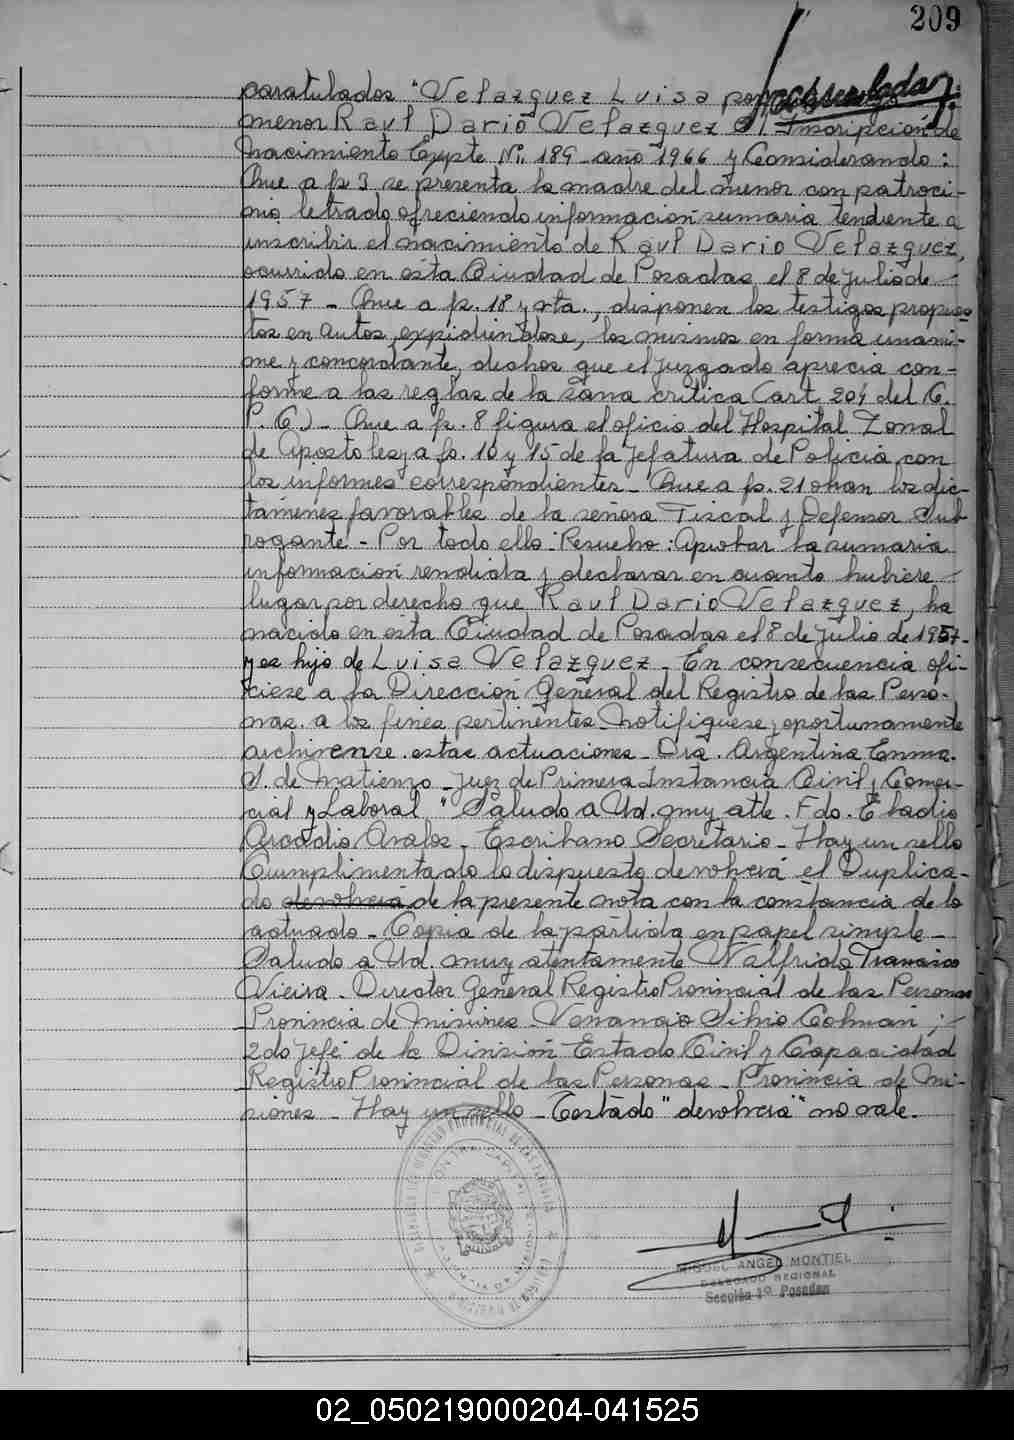 209
caratulados "Velazquez Luisa por
menor Raul Dario Velazquez S/. Inscripcion de
nacimiento Expte Nº 189 - año 1966 y Considerando:
Que a fs 3 se presenta la madre del menor con patroci-
nio letrado ofreciendo informacion sumaria tendiente a
inscribir el nacimiento de Raul Dario Velazquez,
ocurrido en esta Ciudad de Posadas el 8 de Julio de -
1957 - Que a fs. 18 y vta., disponen los testigos propues
tos en autos, expidiendose, los mismos en forma unani-
me y concordante, dichos que el Juzgado aprecia con-
forme a las reglas de la sana critica (art 204 del C.
P. C.) - Que a fs. 8 figura el oficio del Hospital Zonal
de Apostoles y a fs. 10 y 15 de la Jefatura de Policia, con
los informes correspondientes - Que a fs. 21 obran los dic-
tamenes favorables de la señora Fiscal y Defensor Sub
rogante - Por todo ello Resuelvo: Aprobar la sumaria
informacion rendida y declarar en cuanto hubiere -
lugar por derecho que Raul Dario Velazquez, ha
nacido en esta Ciudad de Posadas el 8 de Julio de 1957 -
y es hijo de Luisa Velazquez - En consecuencia ofi-
ciese a la Direccion General del Registro de las Perso-
nas. a los fines pertinentes Notifiquese y oportunamente
archivense estas actuaciones - Dra. Argentina Emma.
S. de Matienzo - Juez de Primera Instancia Civil y Comer-
cial y Laboral " Saludo a Ud. muy atte. Fdo. Eladio
Arcadio Avalos - Escribano Secretario - Hay un sello
Cumplimentado lo dispuesto devolverá el Duplica-
do devolverá de la presente nota con la constancia de lo
actuado - Copia de la partida en papel simple -
Saludo a Ud. muy atentamente Walfrido Francisco
Vieira - Director General Registro Provincial de las Personas
Provincia de Misiones - Venancio Silvio Colman; -
2do Jefe de la Division Estado Civil y Capacidad
Registro Provincial de las Personas - Provincia de Mi-
siones - Hay un sello - Testado "devolverá" no vale.
MIGUEL ANGEL MONTIEL
DELEGADO REGIONAL
Sección 1ª Posadas
02_050219000204-041525